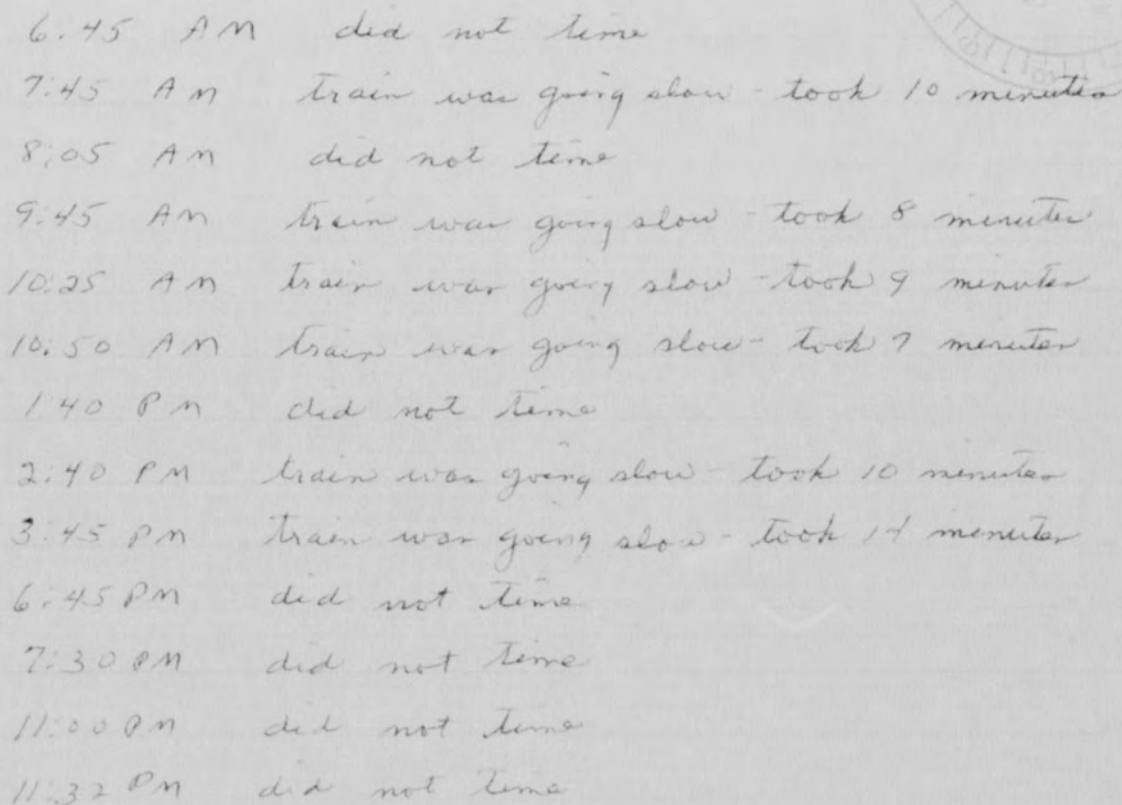 6:45 AM did not time
7:45 AM train was going slow - took 10 minutes
8:05 AM did not time
9:45 AM train was going slow - took 8 minutes
10:25 AM train was going slow - took 9 minutes
10:50 AM train was going slow - took 7 minutes
1:40 PM did not time
2:40 PM train was going slow - took 10 minutes
3:45 PM train was going slow - took 14 minutes
6:45 PM did not time
7:30 PM did not time
11:00 PM did not time
11:32 PM did not time